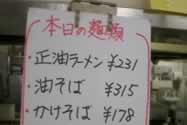 本日の麺類
・正油ラーメン ¥231
・油そば ¥315
・かけそば ¥178